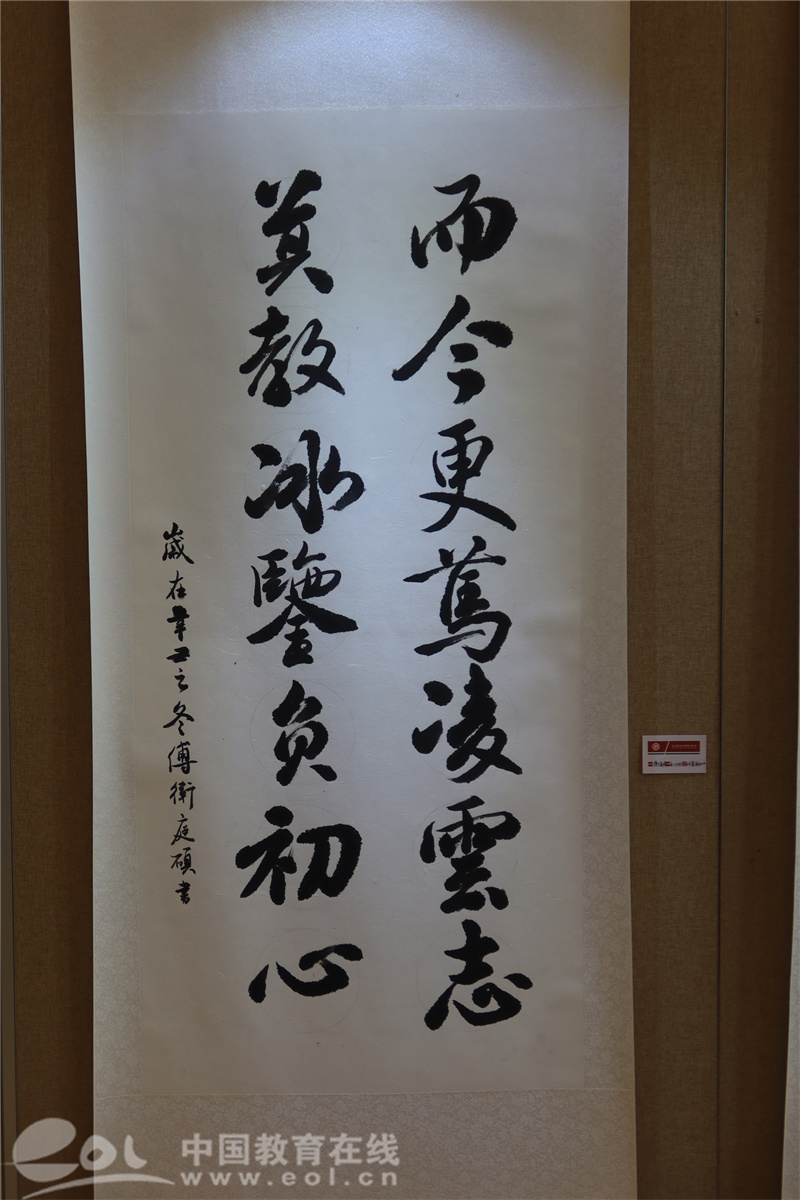 而今更篤凌雲志
莫教冰鑒負初心
歲在辛丑之冬傅衛庭碩書
eol 中国教育在线
www.eol.cn